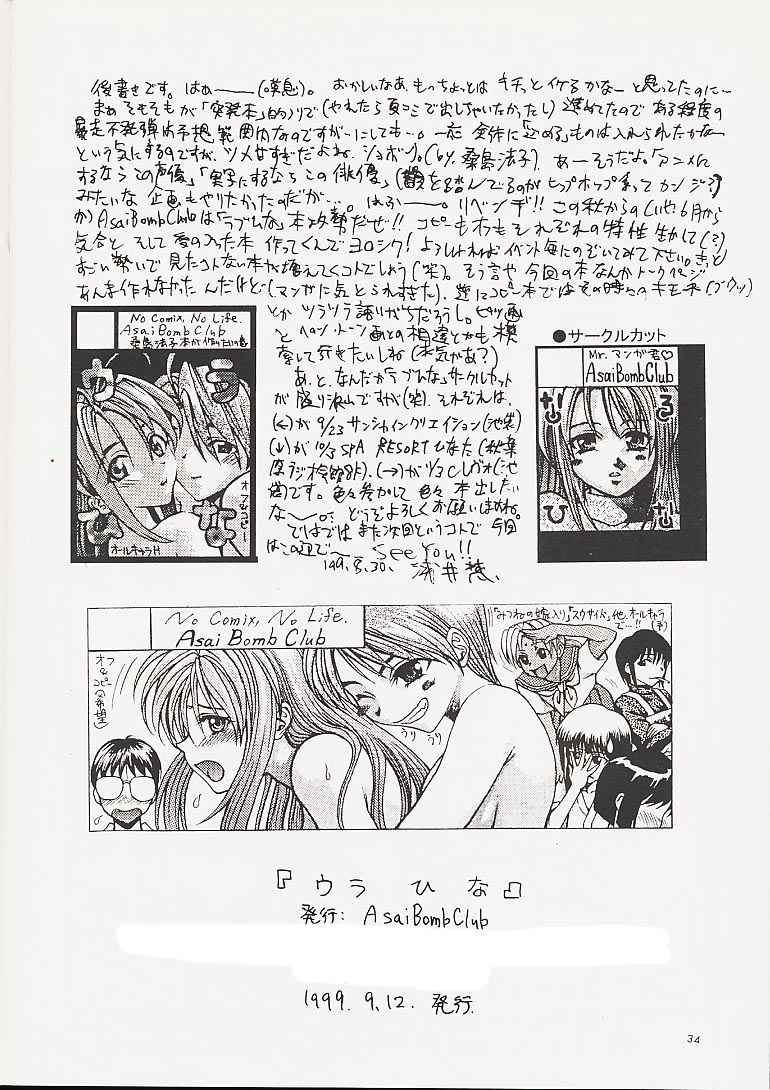 後書きです。はぁ――(嘆息)。おかしいなあ、もっちょっとは キチっとイケるかなーと思ってたのに…
まぁそもそもが「突発本」的ノリで(やれたら夏コミで出しちゃいたかったし)進めてたので ある程度の
暴走不発弾は予想範囲内なのですが…にしても…。一応 全体に「込める」ものは入れられたかなー
という気にするのですが、ツメ甘すぎだよね。ショボン。(by.桑島法子)。あーそうだよ。「アニメに
するならこの声優」「実写にするならこの俳優」(韻を踏んでるのがヒップホップ系ってカンジ?)
みたいな企画もやりたかったのだが…。はふー。リベンヂ!! この秋からの(いや6月から
か)AsaiBombClubは「ラブひな」本攻勢だぜ!! コピーもオフもそれぞれの特性生かして(?)
気合と そして愛の入った本 作ってくんでヨロシク! よろしければイベント毎にのぞいてみて下さい。きっと
すごい勢いで見たコトない本が増えてくコトでしょう(笑)。そう言や今回の本なんかトークページ
あんま作れなかったんだけど…(マンガに気とられすぎた)、逆にコピー本ではその時々のキモチ
とかツラツラ語りがちだろうし。
とペン・トーン画との相違とかも模
索して行きたいしね(本気かあ?)
あ、と、なんだか「ラブひな」サークルカット
が盛り沢山ですが(笑)、それぞれは、
(←)が 9/23 サンシャインクリエイション(池袋)
(↓)が 10/3 SPA RESORT ひなた(秋葉
原ラジオ会館8F)、(→)が
袋)です。色々参加して 色々 本出したい
な〜。どうぞよろしくお願いしますね。
ではでは また次回というコトで 今回
はこの辺で〜 See You!!
'99.8.30. 浅井
No Comix, No Life.
Asai Bomb Club
桑島法子本が作りたい
ら
ぶ
ひ
な
オフ&コピー
オールキャラH
●サークルカット
Mr.マンガ君♡
AsaiBombClub
な
る
ひ
な
No Comix, No Life.
Asai Bomb Club
オフ&コピー(希望)
うり うり
「みつねの嫁入り」「スウサイド」他、オールキャラで…!!(予)
『ウラ ひな』
発行: AsaiBombClub
1999. 9. 12. 発行
34